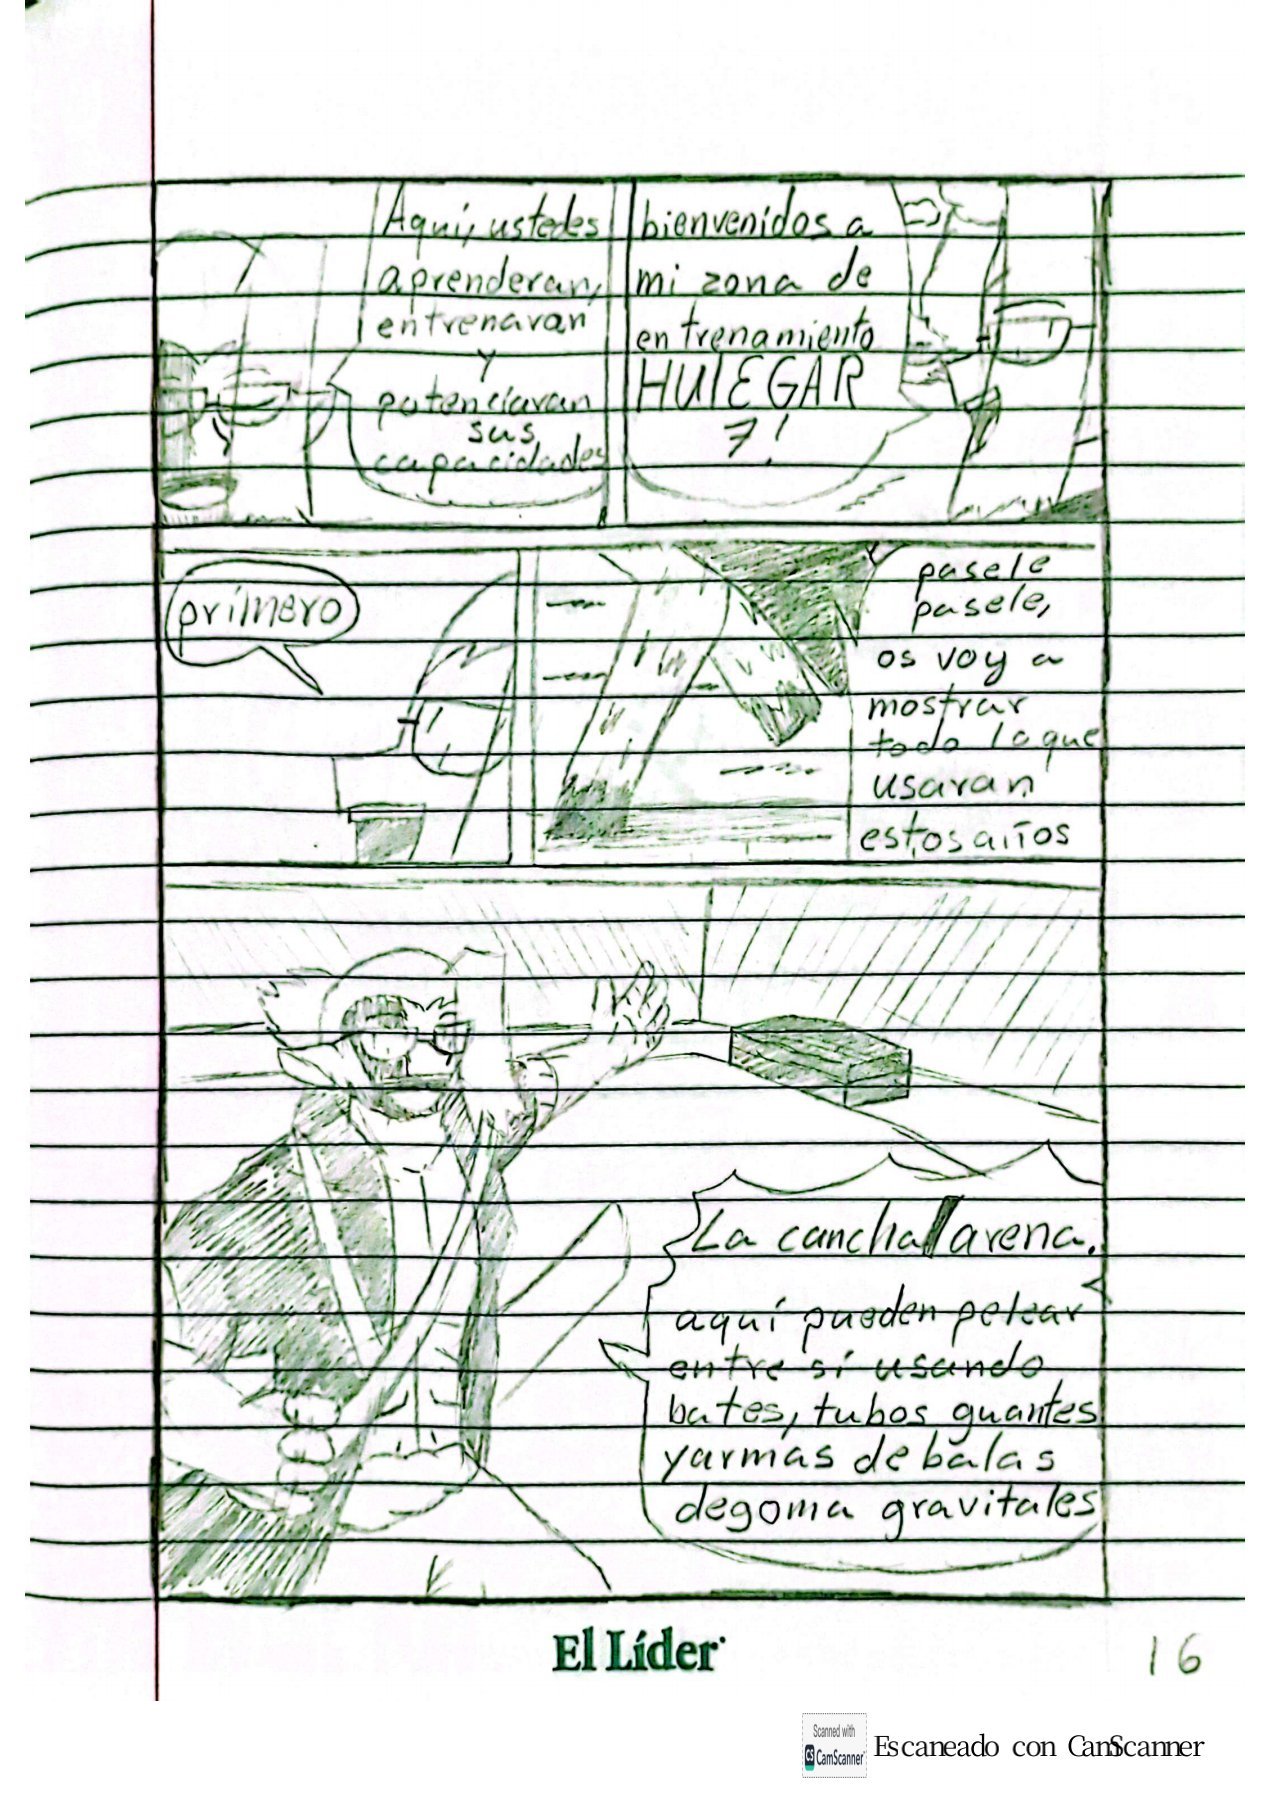 bienvenidos a
mi zona de
entrenamiento
HUIEGAR
7!
Aquí, ustedes
aprenderan,
entrenaran
y
potenciaran
sus
capacidades
pasele
pasele,
os voy a
mostrar
todo lo que
usaran
estos años
primero
La cancha/arena.
aquí pueden pelear
entre sí usando
bates, tubos guantes
y armas de balas
de goma gravitales
El Líder
16
Scanned with
CS CamScanner
Escaneado con CamScanner